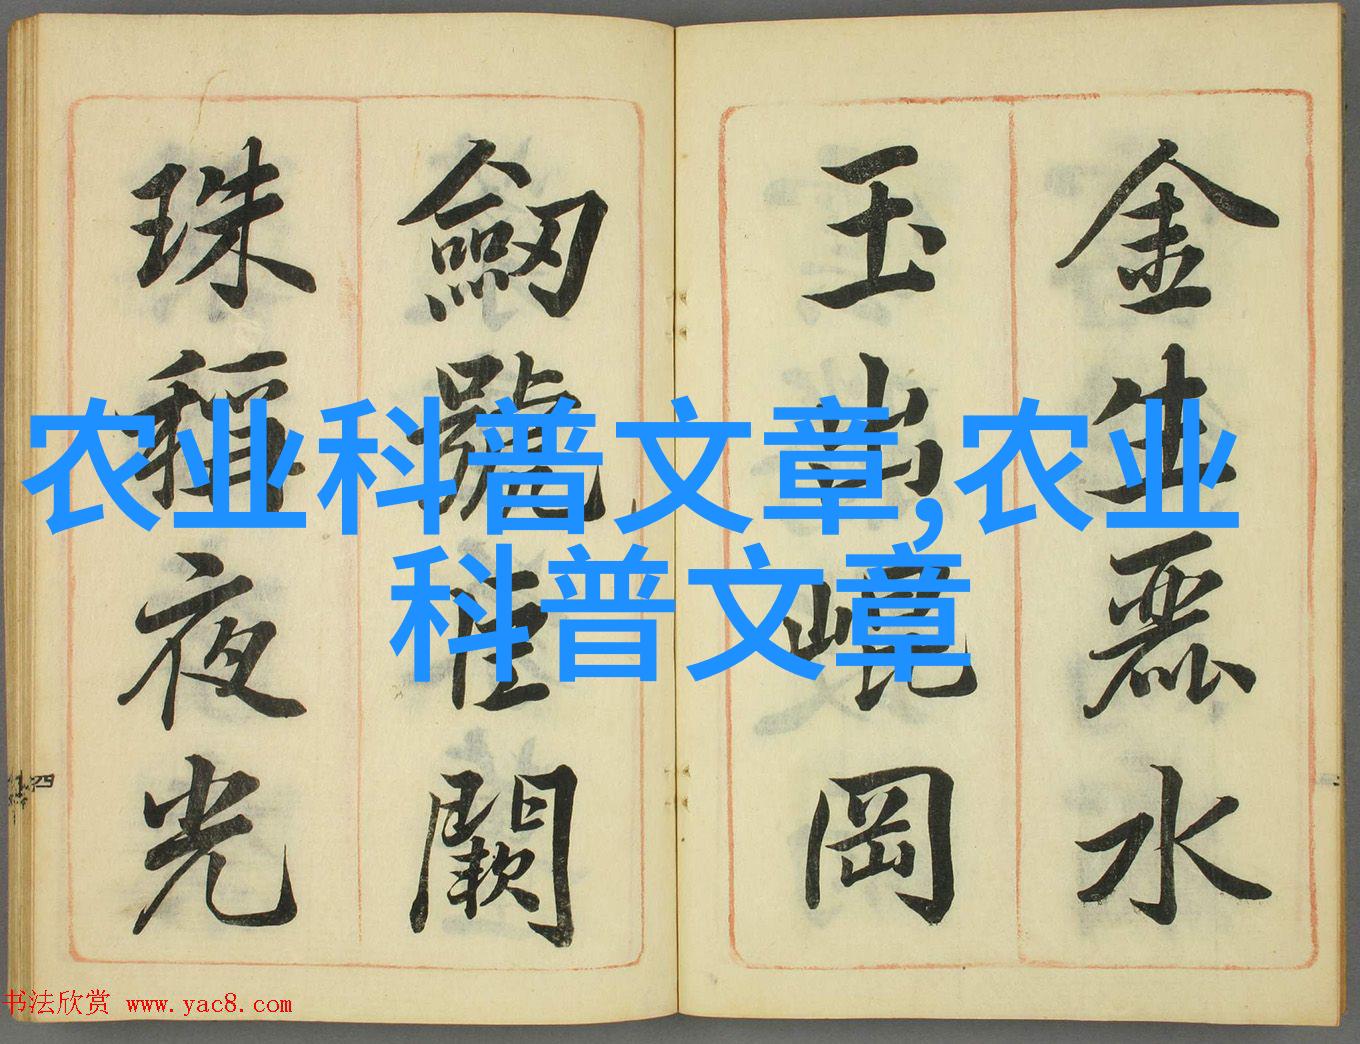 金生麗水
玉出崐岡
劒號巨闕
珠稱夜光
农业科普文章,农业
科普文章
四
书法欣赏 www.yac8.com